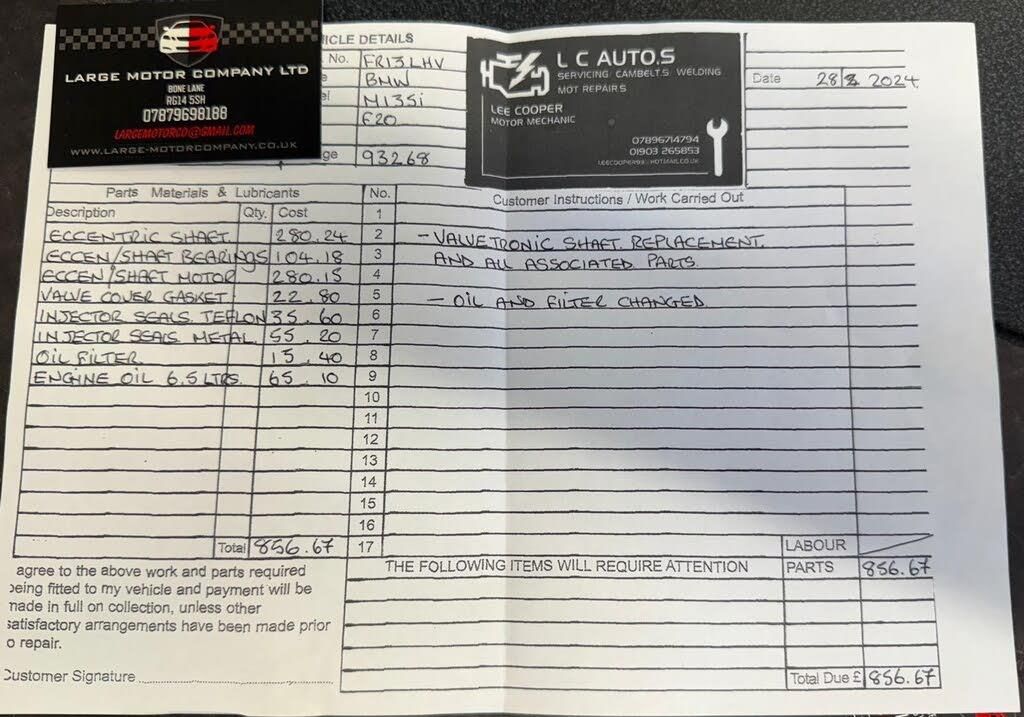 LARGE MOTOR COMPANY LTD
BONE LANE
RG14 5SH
07879698188
LARGEMOTORCO@GMAIL.COM
WWW.LARGE-MOTORCOMPANY.CO.UK
ICLE DETAILS
No. FR13LHV
e BMW
el M135i
F20
ge 93268
L C AUTO,S
SERVICING CAMBELT,S WELDING
MOT REPAIR,S
LEE COOPER
MOTOR MECHANIC
07896714794
01903 265853
Date 28 8 2024
Parts Materials & Lubricants No. Customer Instructions / Work Carried Out
Description Qty. Cost 1
ECCENTRIC SHAFT. 280.24 2 - VALVETRONIC SHAFT REPLACEMENT
ECCEN/SHAFT BEARINGS 104.18 3 AND ALL ASSOCIATED PARTS.
ECCEN/SHAFT MOTOR 280.15 4
VALVE COVER GASKET 22.80 5 - OIL AND FILTER CHANGED
INJECTOR SEALS TEFLON 35.60 6
INJECTOR SEALS METAL. 55.20 7
OIL FILTER. 15.40 8
ENGINE OIL 6.5 LTRS. 65.10 9
10
11
12
13
14
15
16
Total 856.67 17 LABOUR
THE FOLLOWING ITEMS WILL REQUIRE ATTENTION PARTS 856.67
agree to the above work and parts required
being fitted to my vehicle and payment will be
made in full on collection, unless other
satisfactory arrangements have been made prior
o repair.
Customer Signature
Total Due £ 856.67